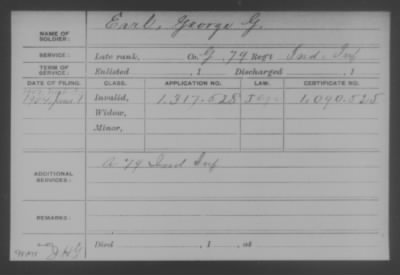 NAME OF SOLDIER: Earl, George G.
SERVICE: Late rank, Co. G, 79 Reg't Ind. Inf
TERM OF SERVICE: Enlisted , 1 Discharged , 1
DATE OF FILING. CLASS. APPLICATION NO. LAW. CERTIFICATE NO.
1904, June 1 Invalid, 1.317.528 1.090.525
Widow,
Minor,
ADDITIONAL SERVICES: A 79 Ind Inf
REMARKS:
Died , 1 , at